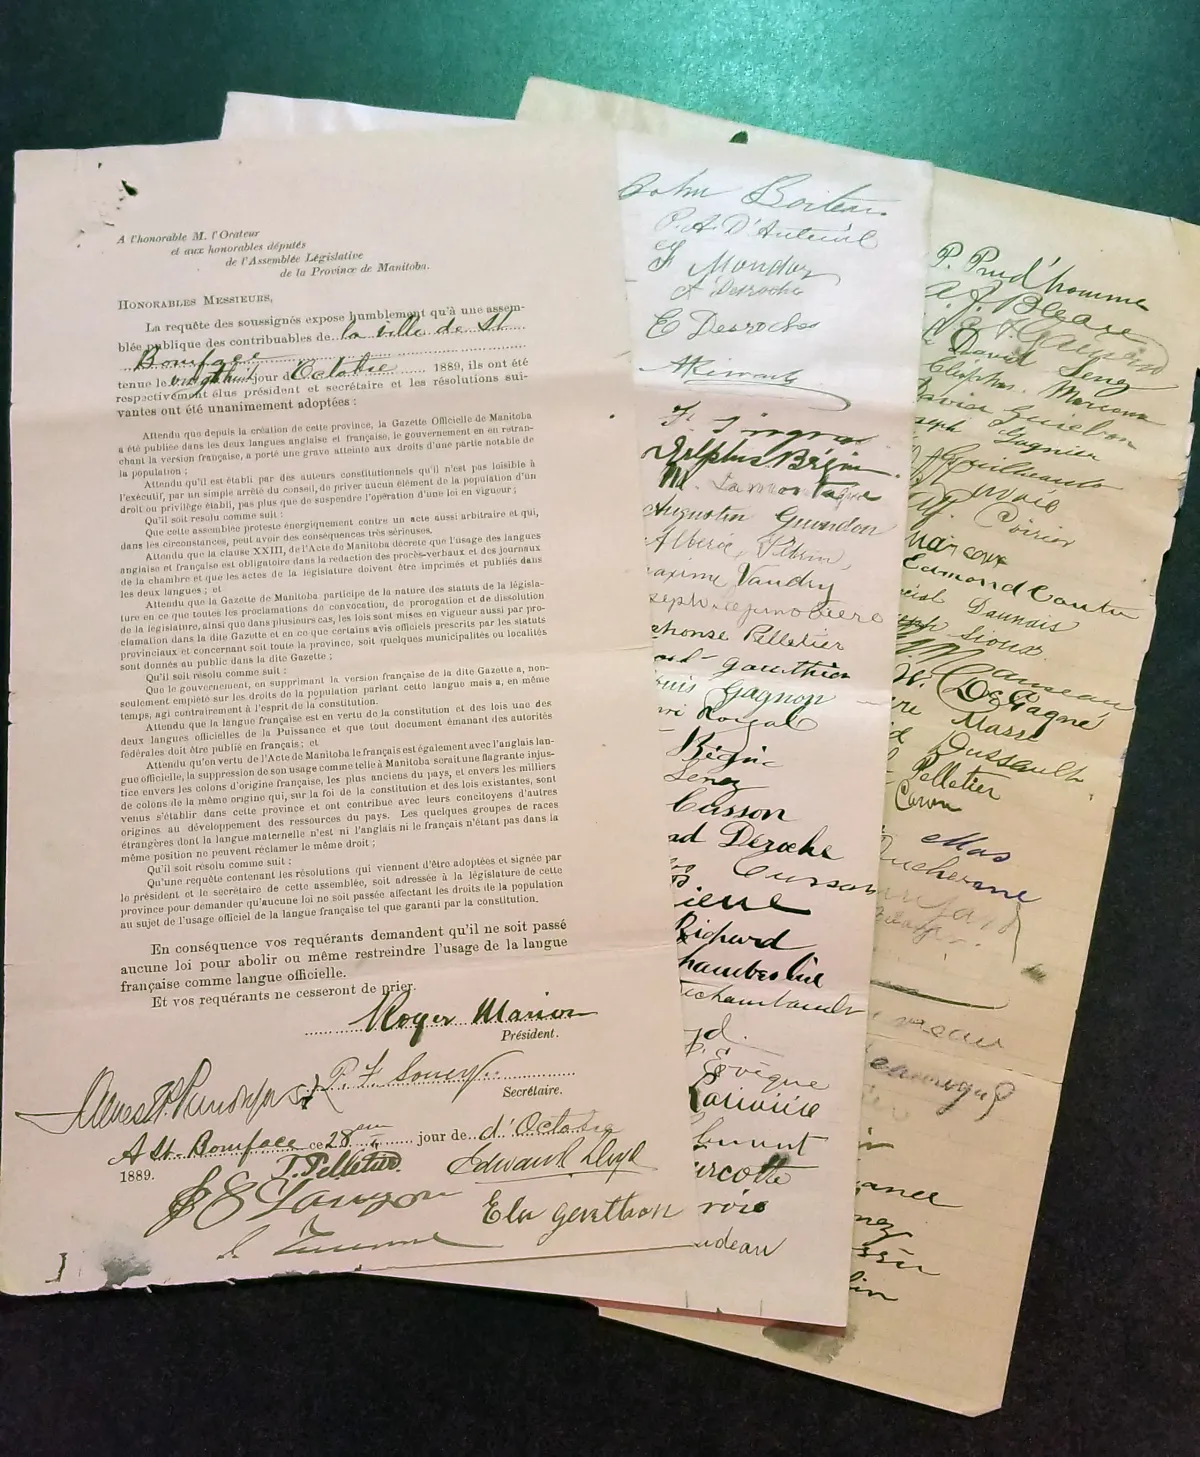 A l'honorable M. l'Orateur
et aux honorables députés
de l'Assemblée Législative
de la Province de Manitoba.
HONORABLES MESSIEURS,
La requête des soussignés expose humblement qu'à une assem-
blée publique des contribuables de la ville de St
Boniface
tenue le vingthuit jour d'Octobre 1889, ils ont été
respectivement élus président et secrétaire et les résolutions sui-
vantes ont été unanimement adoptées :
Attendu que depuis la création de cette province, la Gazette Officielle de Manitoba
a été publiée dans les deux langues anglaise et française, le gouvernement en en retran-
chant la version française, a porté une grave atteinte aux droits d'une partie notable de
la population ;
Attendu qu'il est établi par des auteurs constitutionnels qu'il n'est pas loisible à
l'exécutif, par un simple arrêté du conseil, de priver aucun élément de la population d'un
droit ou privilège établi, pas plus que de suspendre l'opération d'une loi en vigueur ;
Qu'il soit résolu comme suit :
Que cette assemblée proteste énergiquement contre un acte aussi arbitraire et qui,
dans les circonstances, peut avoir des conséquences très sérieuses.
Attendu que la clause XXIII, de l'Acte de Manitoba décrète que l'usage des langues
anglaise et française est obligatoire dans la rédaction des procès-verbaux et des journaux
de la chambre et que les actes de la législature doivent être imprimés et publiés dans
les deux langues ; et
Attendu que la Gazette de Manitoba participe de la nature des statuts de la législa-
ture en ce que toutes les proclamations de convocation, de prorogation et de dissolution
de la législature, ainsi que dans plusieurs cas, les lois sont mises en vigueur aussi par pro-
clamation dans la dite Gazette et en ce que certains avis officiels prescrits par les statuts
provinciaux et concernant soit toute la province, soit quelques municipalités ou localités
sont donnés au public dans la dite Gazette ;
Qu'il soit résolu comme suit :
Que le gouvernement, en supprimant la version française de la dite Gazette a, non-
seulement empiété sur les droits de la population parlant cette langue mais a, en même
temps, agi contrairement à l'esprit de la constitution.
Attendu que la langue française est en vertu de la constitution et des lois une des
deux langues officielles de la Puissance et que tout document émanant des autorités
fédérales doit être publié en français ; et
Attendu qu'en vertu de l'Acte de Manitoba le français est également avec l'anglais lan-
gue officielle, la suppression de son usage comme telle à Manitoba serait une flagrante injus-
tice envers les colons d'origine française, les plus anciens du pays, et envers les milliers
de colons de la même origine qui, sur la foi de la constitution et des lois existantes, sont
venus s'établir dans cette province et ont contribué avec leurs concitoyens d'autres
origines au développement des ressources du pays. Les quelques groupes de races
étrangères dont la langue maternelle n'est ni l'anglais ni le français n'étant pas dans la
même position ne peuvent réclamer le même droit ;
Qu'il soit résolu comme suit :
Qu'une requête contenant les résolutions qui viennent d'être adoptées et signée par
le président et le secrétaire de cette assemblée, soit adressée à la législature de cette
province pour demander qu'aucune loi ne soit passée affectant les droits de la population
au sujet de l'usage officiel de la langue française tel que garanti par la constitution.
En conséquence vos requérants demandent qu'il ne soit passé
aucune loi pour abolir ou même restreindre l'usage de la langue
française comme langue officielle.
Et vos requérants ne cesseront de prier.
Roger Marion
Président.
Secrétaire.
A St. Boniface ce 28 jour de d'Octobre
1889.
T. Pelletier
Edward Lloyd
John
P. A. D'Auteuil
F Mondor
A Desroche
E Desroches
F Gingras
Delphis Bégin
M. Lamontagne
Augustin Guindon
Albéric
axime Vaudry
phonse Pelletier
ard Gauthier
ouis Gagnon
nri Royal
Bégin
Senez
Cusson
ad Deroche
Cusson
Richard
hamberlin
chambault
Evêque
Larivière
urcotte
rois
udeau
P. Prud'homme
A. J. Bleau
David Senez
Cléophas Marcoux
avier Guiebon
seph Gagnier
Guilbeault
Alf. Poirier
Marcoux
Edmond Coutu
Daunais
ph Sioux
Manseau
W. C. DeGagné
re Masse
d Dussault
Pelletier
Caron
Mas
Ducharme
nez
lin